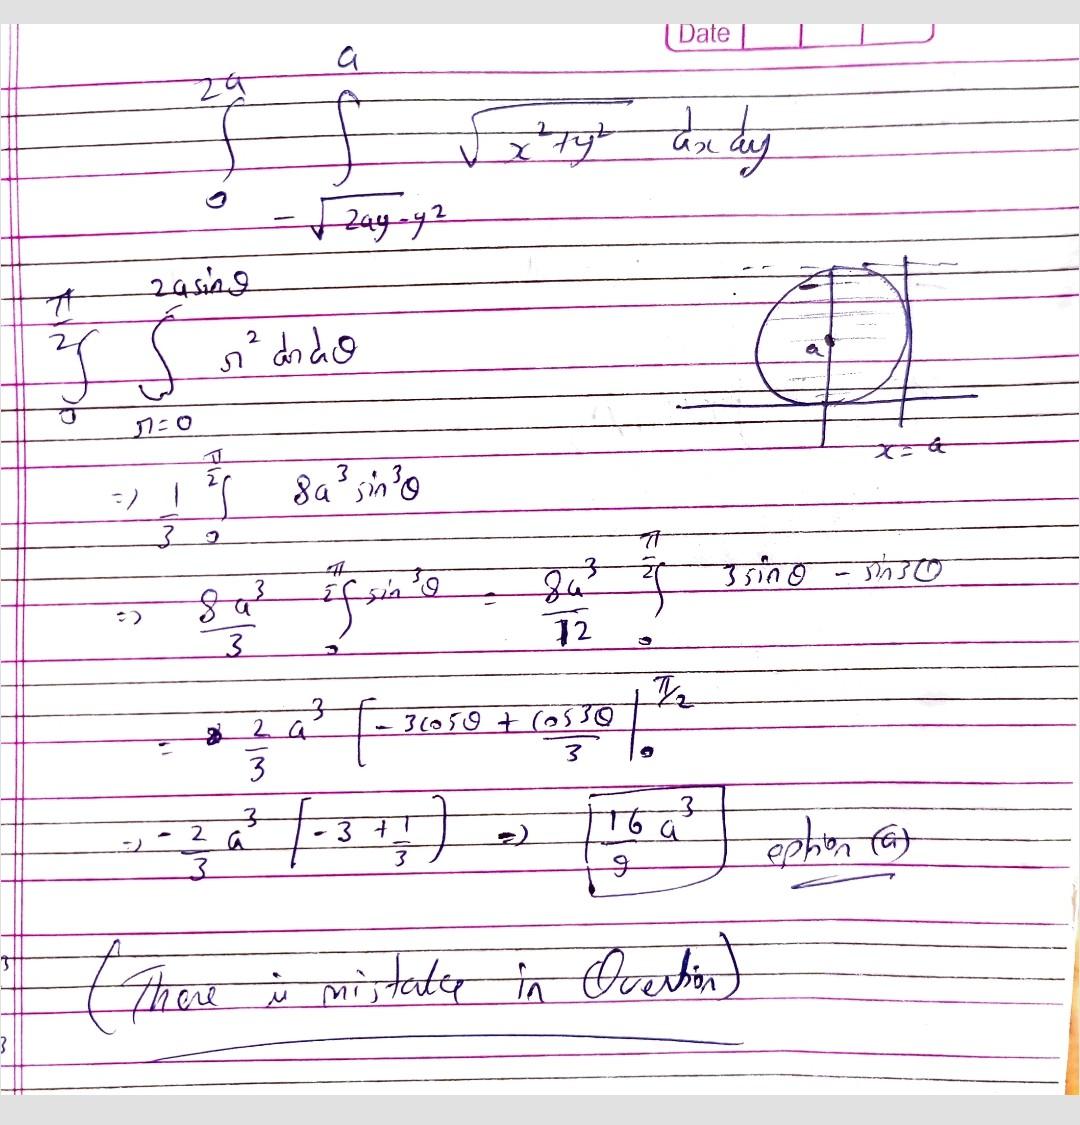 Date
∫₀^{2a} ∫_{-√(2ay-y²)}^{a} √(x²+y²) dx dy
∫₀^{π/2} ∫_{r=0}^{2a sinθ} r² dr dθ
a
x = a
=> 1/3 ∫₀^{π/2} 8a³ sin³θ
=> 8a³/3 ∫₀^{π/2} sin³θ = 8a³/12 ∫₀^{π/2} 3sinθ - sin3θ
= 2/3 a³ [-3cosθ + cos3θ/3 |₀^{π/2}
=> -2/3 a³ [-3 + 1/3] => 16/9 a³ option (a)
(There is mistake in Question)